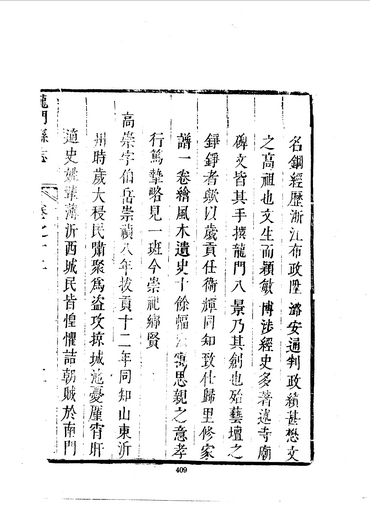 名鋼經歷浙江布政陞潞安通判政績甚懋文
之高祖也文生而穎敏博涉經史多著述寺廟
碑文皆其手撰龍門八景乃其創也殆藝壇之
錚錚者歟以歲貢任衛輝同知致仕歸里修家
譜一卷繪風木遺史十餘幅寓思親之意孝
行篤摯略見一斑今崇祀鄉賢
高崇字伯岳崇禎八年拔貢十二年同知山東沂
州時歲大祲民嘯聚為盜攻掠城池憂厪宵旰
適史薄沂西城民皆惶懼詰朝賊於南門
龍門縣志
卷之十二
409